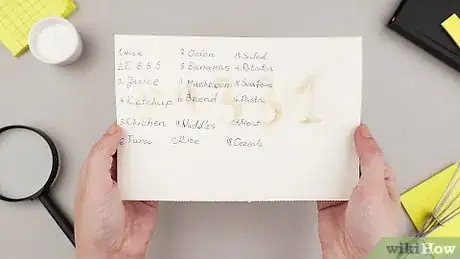 1. Milk
2. EGGS
3. Juice
4. Ketchup
5. Chicken
6. Tuna
7. Onion
8. Bananas
9. Mushroom
10. Bread
11. Noodles
12. Rice
13. Salad
14. Potatos
16. Pasta
17. Meat
18. Cereals
wikiHow